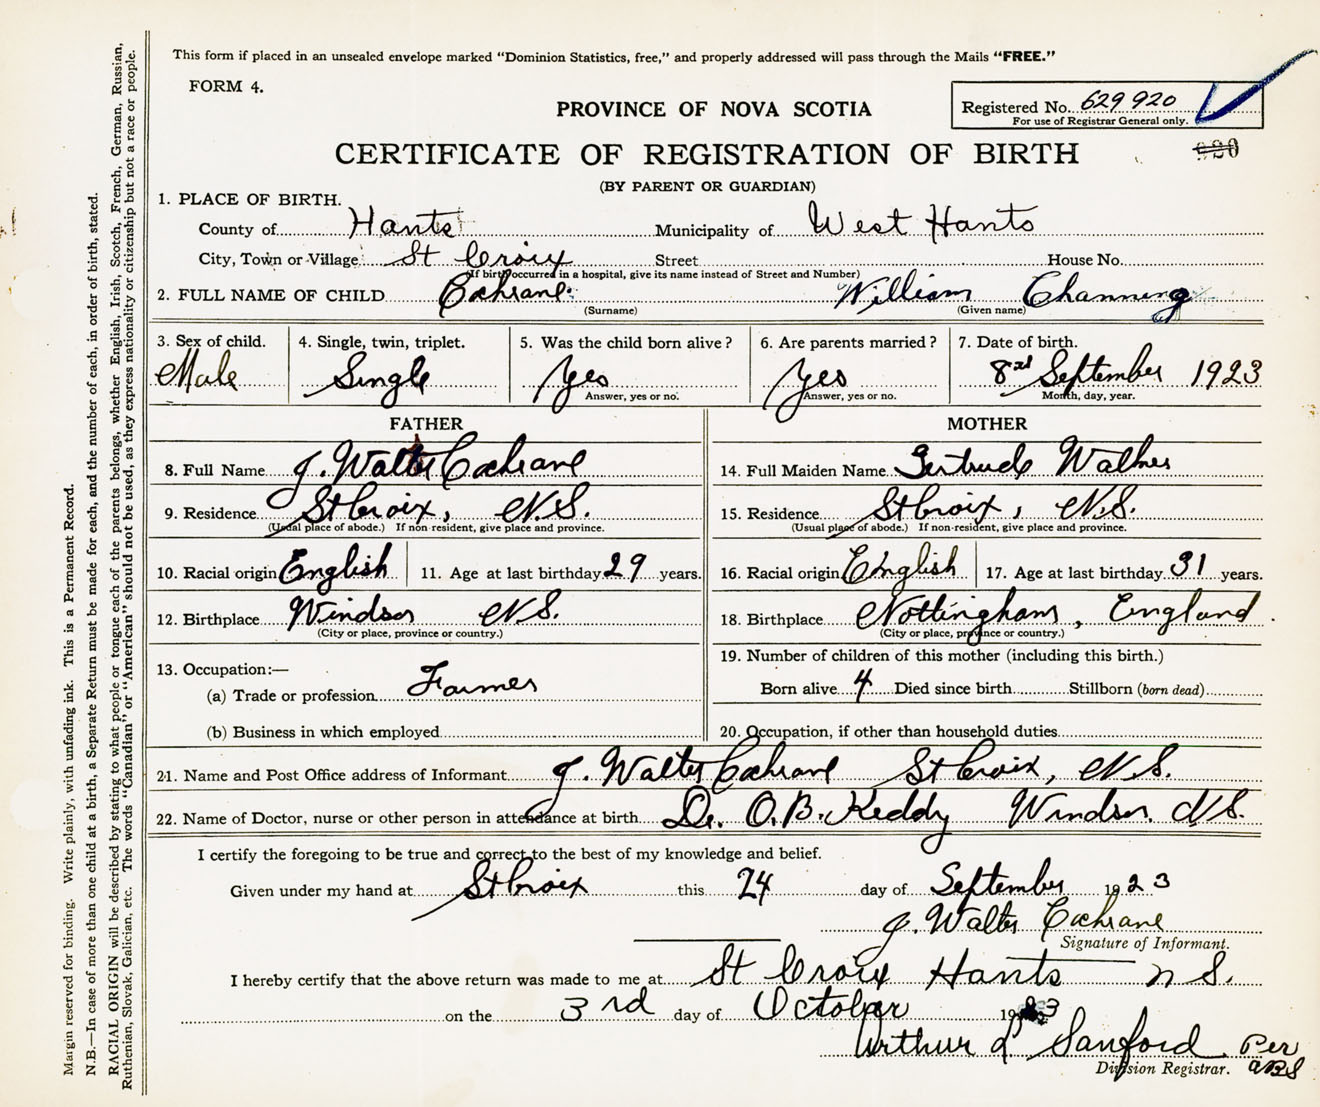 This form if placed in an unsealed envelope marked "Dominion Statistics, free," and properly addressed will pass through the Mails "FREE."
FORM 4.
Registered No. 629 920
For use of Registrar General only.
PROVINCE OF NOVA SCOTIA
CERTIFICATE OF REGISTRATION OF BIRTH
(BY PARENT OR GUARDIAN)
1. PLACE OF BIRTH.
County of Hants Municipality of West Hants
City, Town or Village St Croix Street House No.
(If birth occurred in a hospital, give its name instead of Street and Number)
2. FULL NAME OF CHILD Cochrane William Channing
(Surname) (Given name)
3. Sex of child. 4. Single, twin, triplet. 5. Was the child born alive? 6. Are parents married? 7. Date of birth.
Male Single Yes Yes 8 September 1923
Answer, yes or no. Answer, yes or no. Month, day, year.
FATHER
8. Full Name J. Walter Cochrane
9. Residence St Croix, N.S.
(Usual place of abode.) If non-resident, give place and province.
10. Racial origin English 11. Age at last birthday 29 years.
12. Birthplace Windsor N.S.
(City or place, province or country.)
13. Occupation:—
(a) Trade or profession Farmer
(b) Business in which employed
MOTHER
14. Full Maiden Name Gertrude
15. Residence St Croix, N.S.
(Usual place of abode.) If non-resident, give place and province.
16. Racial origin English 17. Age at last birthday 31 years.
18. Birthplace Nottingham, England.
(City or place, province or country.)
19. Number of children of this mother (including this birth.)
Born alive 4 Died since birth Stillborn (born dead)
20. Occupation, if other than household duties
21. Name and Post Office address of Informant J. Walter Cochrane St Croix, N.S.
22. Name of Doctor, nurse or other person in attendance at birth Dr. O.B. Keddy Windsor. N.S.
I certify the foregoing to be true and correct to the best of my knowledge and belief.
Given under my hand at St Croix this 24 day of September 1923
J. Walter Cochrane
Signature of Informant.
I hereby certify that the above return was made to me at St Croix Hants N S.
on the 3rd day of October 1923
Arthur L Sanford Per
Division Registrar. ABS
Margin reserved for binding. Write plainly, with unfading ink. This is a Permanent Record.
N.B.—In case of more than one child at a birth, a Separate Return must be made for each, and the number of each, in order of birth, stated.
RACIAL ORIGIN will be described by stating to what people or tongue each of the parents belongs, whether English, Irish, Scotch, French, German, Russian,
Ruthenian, Slovak, Galician, etc. The words "Canadian" or "American" should not be used, as they express nationality or citizenship but not a race or people.